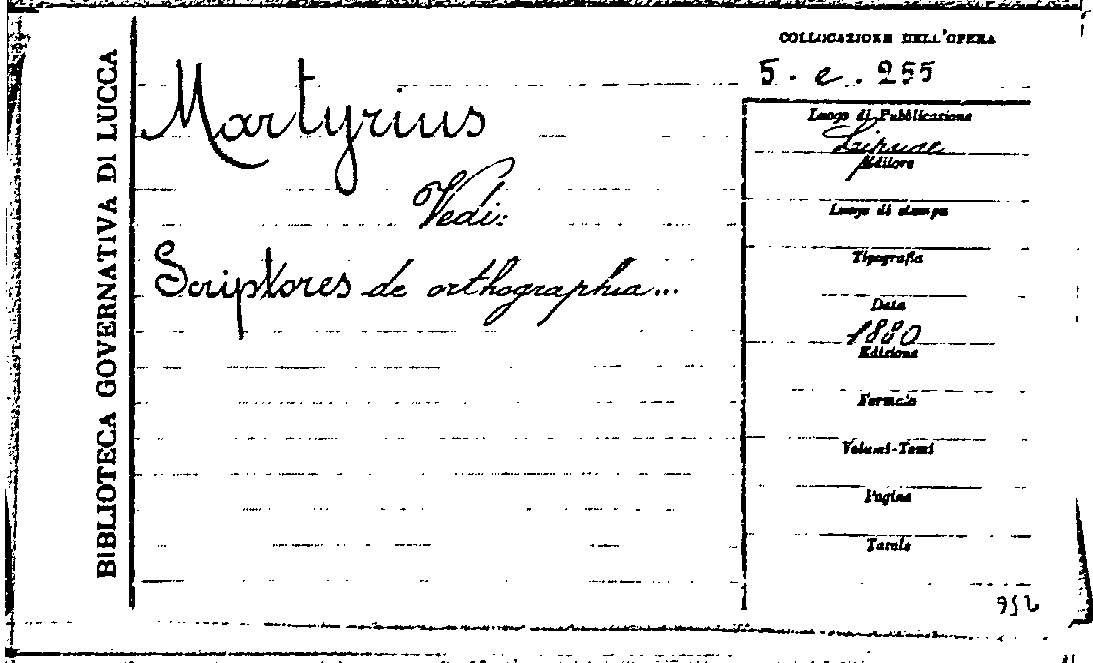 BIBLIOTECA GOVERNATIVA DI LUCCA
COLLOCAZIONE DELL'OPERA
5. e. 255
Martyrius
Vedi:
Scriptores de orthographia...
Luogo di Pubblicazione
Lipsiae
Editore
Luogo di stampa
Tipografia
Data
1880
Edizione
Formato
Volumi-Tomi
Pagine
Tavole
952